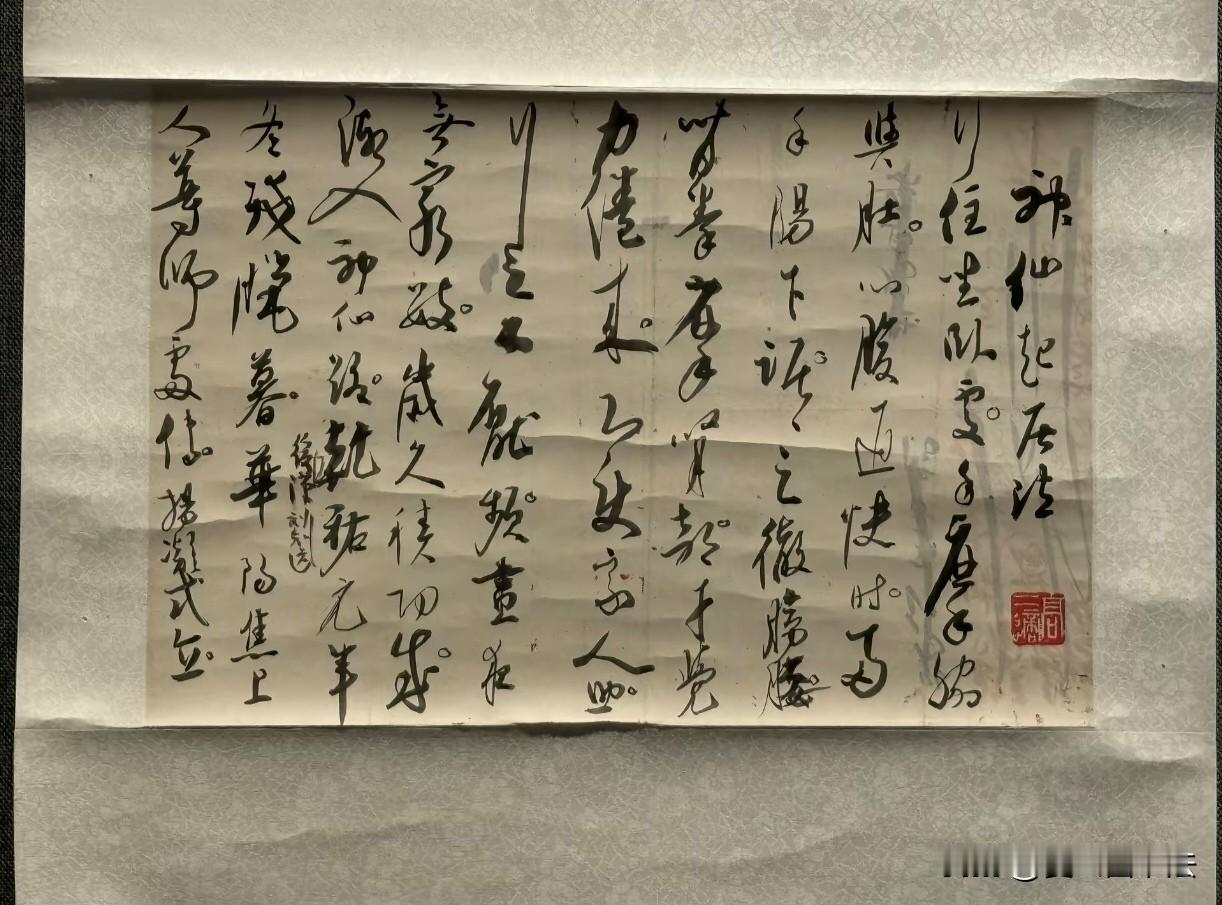 神仙起居法
行住坐臥處。手摩脇
與肚。心腹通快时。両
手腸下踞。〻之徹膀腰
背拳摩腎部。才覺
力倦来。即使家人助。
行之不厭頻。晝夜
無窮數。歲久積功成。
漸入神仙路。乾祐元年
冬殘臘暮。華陽焦上
人尊師處傳。楊凝式